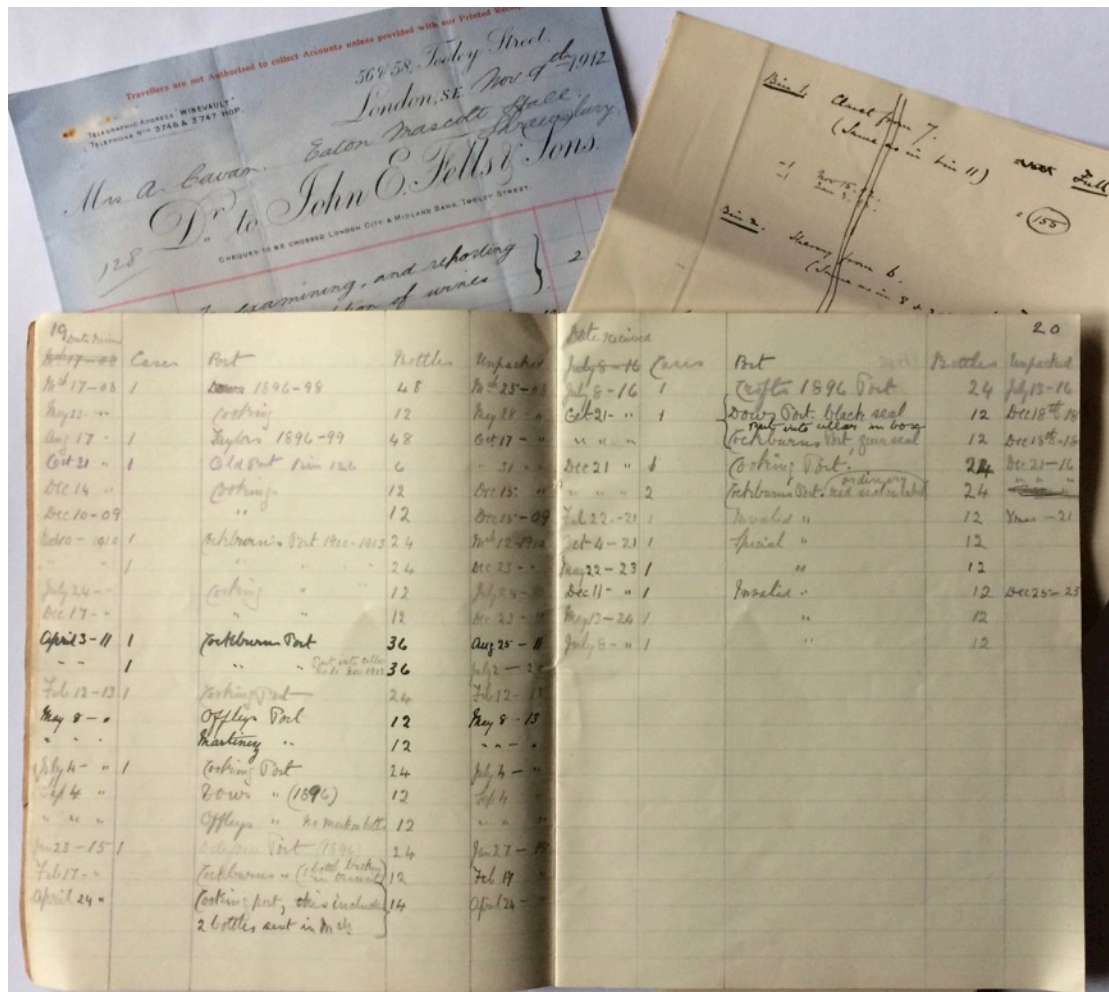 Travellers are not Authorized to collect Accounts unless provided with our Printed
56 & 58, Tooley Street,
London, S.E. Nov 9th 1912
TELEGRAPHIC ADDRESS "WINEVAULT"
TELEPHONE Nos 3746 & 3747 HOP.
Mrs A. Cavan. Eaton Mascott Hall.
Shrewsbury.
Dr to John E. Fells & Sons.
CHEQUES TO BE CROSSED LONDON CITY & MIDLAND BANK, TOOLEY STREET.
128
examining, and reporting
of wines
2
Bin 1. Claret from 7.
(Same as in bin 11)
Full
155
Bin 2. Sherry from 6.
(Same as in 8 &
19 Date Received
Cases Port Bottles Unpacked
Mch 17-08 1 Dows 1896-98 48 Mch 25-08
May 23 - " Cooking 12 May 28 - "
Aug 17 - 1 Taylors 1896-99 48 Oct 17 - "
Oct 21 " 1 Old Port Bin 126 6 " 31 "
Dec 14 " Cooking 12 Dec 15 "
Dec 10-09 " 12 Dec 15-09
1910 1 Cockburn's Port 24 Mch 12-1910
" 1 " " 24 Dec 23 - "
July 24 - " Cooking " 12 July 24
Dec 17 - " " " 12 Dec 23
April 3-11 1 Cockburns Port 36 Aug 25-11
" - " 1 " " Put into cellar 36 July 2
Feb 12-13 1 Cooking Port 24 Feb 12-13
May 8 - " Offleys Port 12 May 8-13
" - " Martinez " 12 " - "
July 4 - " 1 Cooking Port 24 July 4 - "
Sep 4 " Dows " (1896) 12 Sep 4 "
" " " Offleys " No mark on bottle 12 " "
Jan 23-15 1 Port (1896) 24 Jan 27-15
Feb 17 - " Cockburns " (1 bottle broken in transit) 12 Feb 19 "
April 24 " Cooking port, this includes 14 April 24 - "
2 bottles sent in Mch
Date Received 20
July 8-16 Cases Port Bottles Unpacked
July 8-16 1 Crofts 1896 Port 24 July 13-16
Oct 21 - " 1 Dows Port black seal 12 Dec 18th 18
Put into cellar in box
" " " Cockburns Port, seal 12 Dec 18th-18
Dec 21 " 1 Cooking Port. 24 Dec 21-16
(ordinary)
" " " 2 Cockburns Port. red seal no label 24
Feb 22-21 1 Invalid " 12 Xmas-21
Oct 4-21 1 Special " 12
May 22-23 1 " 12
Dec 11 - " 1 Invalid " 12 Dec 25-23
May 13-24 1 " 12
July 8 - " 1 " 12